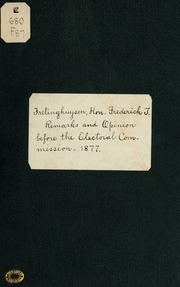 E
680
F87
Frelinghuysen, Hon. Frederick T.
Remarks and Opinion
before the Electoral Com-
mission. 1877.